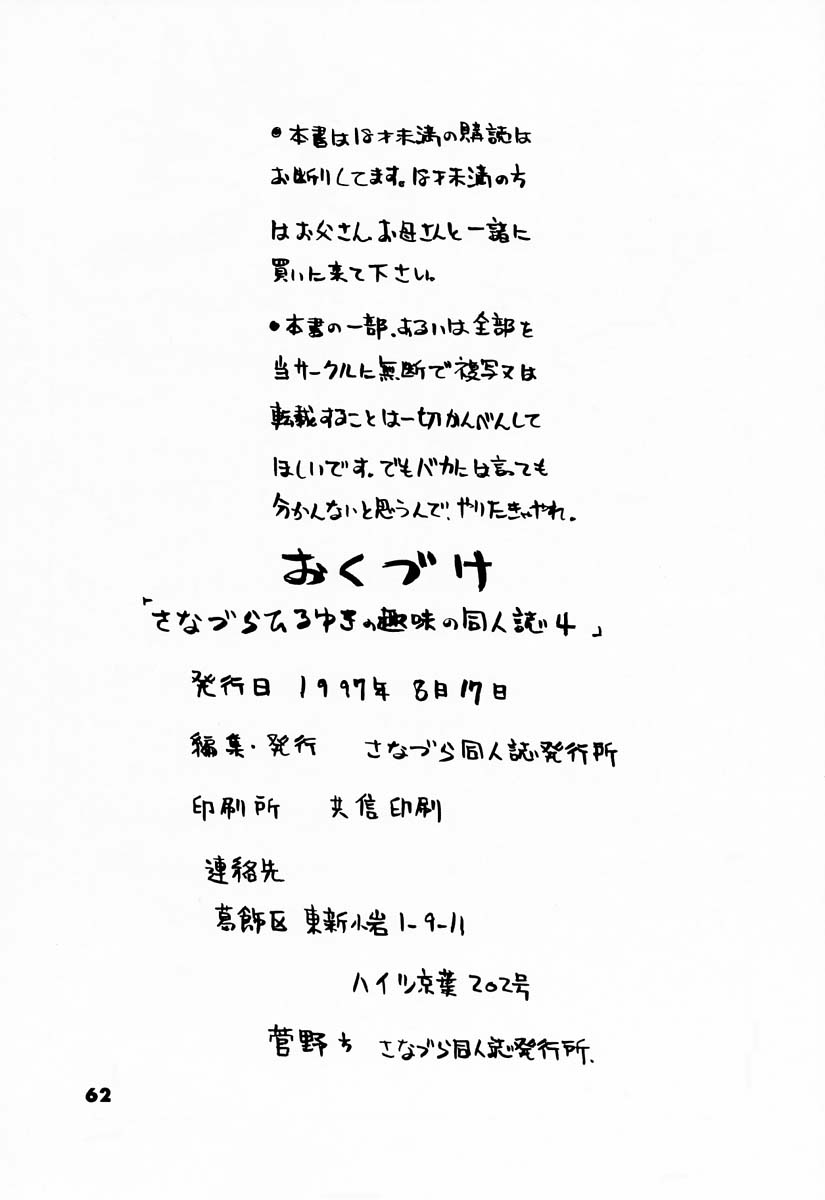 ●本書は18才未満の購読は
お断りしてます。18才未満の方
はお父さん、お母さんと一諸に
買いに来て下さい。
●本書の一部、あるいは全部を
当サークルに無断で複写又は
転載することは一切かんべんして
ほしいです。でもバカには言っても
分かんないと思うんで、やりたきゃやれ。
おくづけ
「さなづらひろゆきの趣味の同人誌4」
発行日 1997年 8月17日
編集・発行 さなづら同人誌発行所
印刷所 共信印刷
連絡先
葛飾区 東新小岩1-9-11
ハイツ京葉202号
菅野方 さなづら同人誌発行所.
62